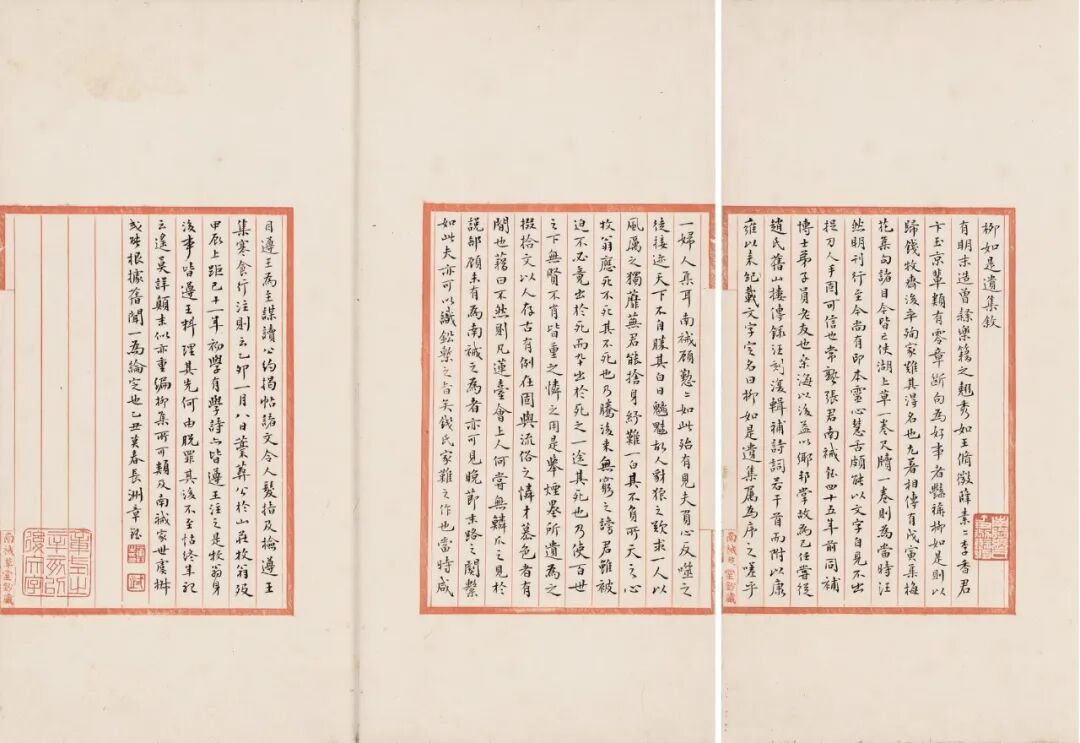 柳如是遺集敘
有明末造曾隸樂籍之翹秀如王脩微薛素二李香君
卞玉京輩類有零章斷句為好事者豔稱柳如是則以
歸錢牧齋後卒殉家難其得名也尤著相傳有戊寅集梅
花集句諸目今皆已佚湖上草一卷尺牘一卷則為當時汪
然明刊行至今尚有印本靈心慧舌頗能以文字自見不出
捉刀人手固可信也常熟張君南祴余四十五年前同補
博士弟子員老友也桑海以後益以鄉邦掌故為己任嘗從
趙氏舊山樓傳錄汪刻復輯補詩詞若干首而附以康
雍以來記載文字定名曰柳如是遺集屬為序之嗟乎
一婦人集耳南祴顧懃二如此殆有見夫負心反噬之
徒接迹天下不自勝其白日魑魅故人豺狼之歎求一人以
風厲之獨蘼蕪君能捨身紓難一白其不負所天之心
牧翁應死不死其不死也乃騰後来無窮之謗君雖被
迫不必竟出於死而卒出於死之一途其死也乃使百世
之下無賢不肖皆重之憐之用是舉煙墨所遺為之
掇拾文以人存古有例在固與流俗之憐才慕色者有
閒也藉曰不然則凡蓮臺會上人何嘗無鱗爪之見於
說部顧未有為南祴之為者亦可見晚節末路之關繫
如此夫亦可以識鉛槧之旨矣錢氏家難之作也當時咸
目遵王為主謀讀公約揭帖諸文令人髮指及檢遵王
集寒食行注則云乙卯一月八日葬公於山莊牧翁歿
甲辰上距已十一年初學有學詩亦皆遵王注之是牧翁身
後事皆遵王料理其先何由脫罪其後不至怙終集記
云遙莫詳顛末似亦重編柳集所可類及南祴家世虞樹
或能根據舊聞一為論定也乙丑美春長洲章鈺
南祴草堂鈔藏
南祴草堂鈔藏